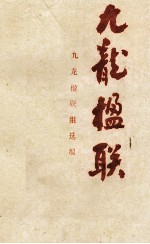 九龙楹联
九龙楹联组选编